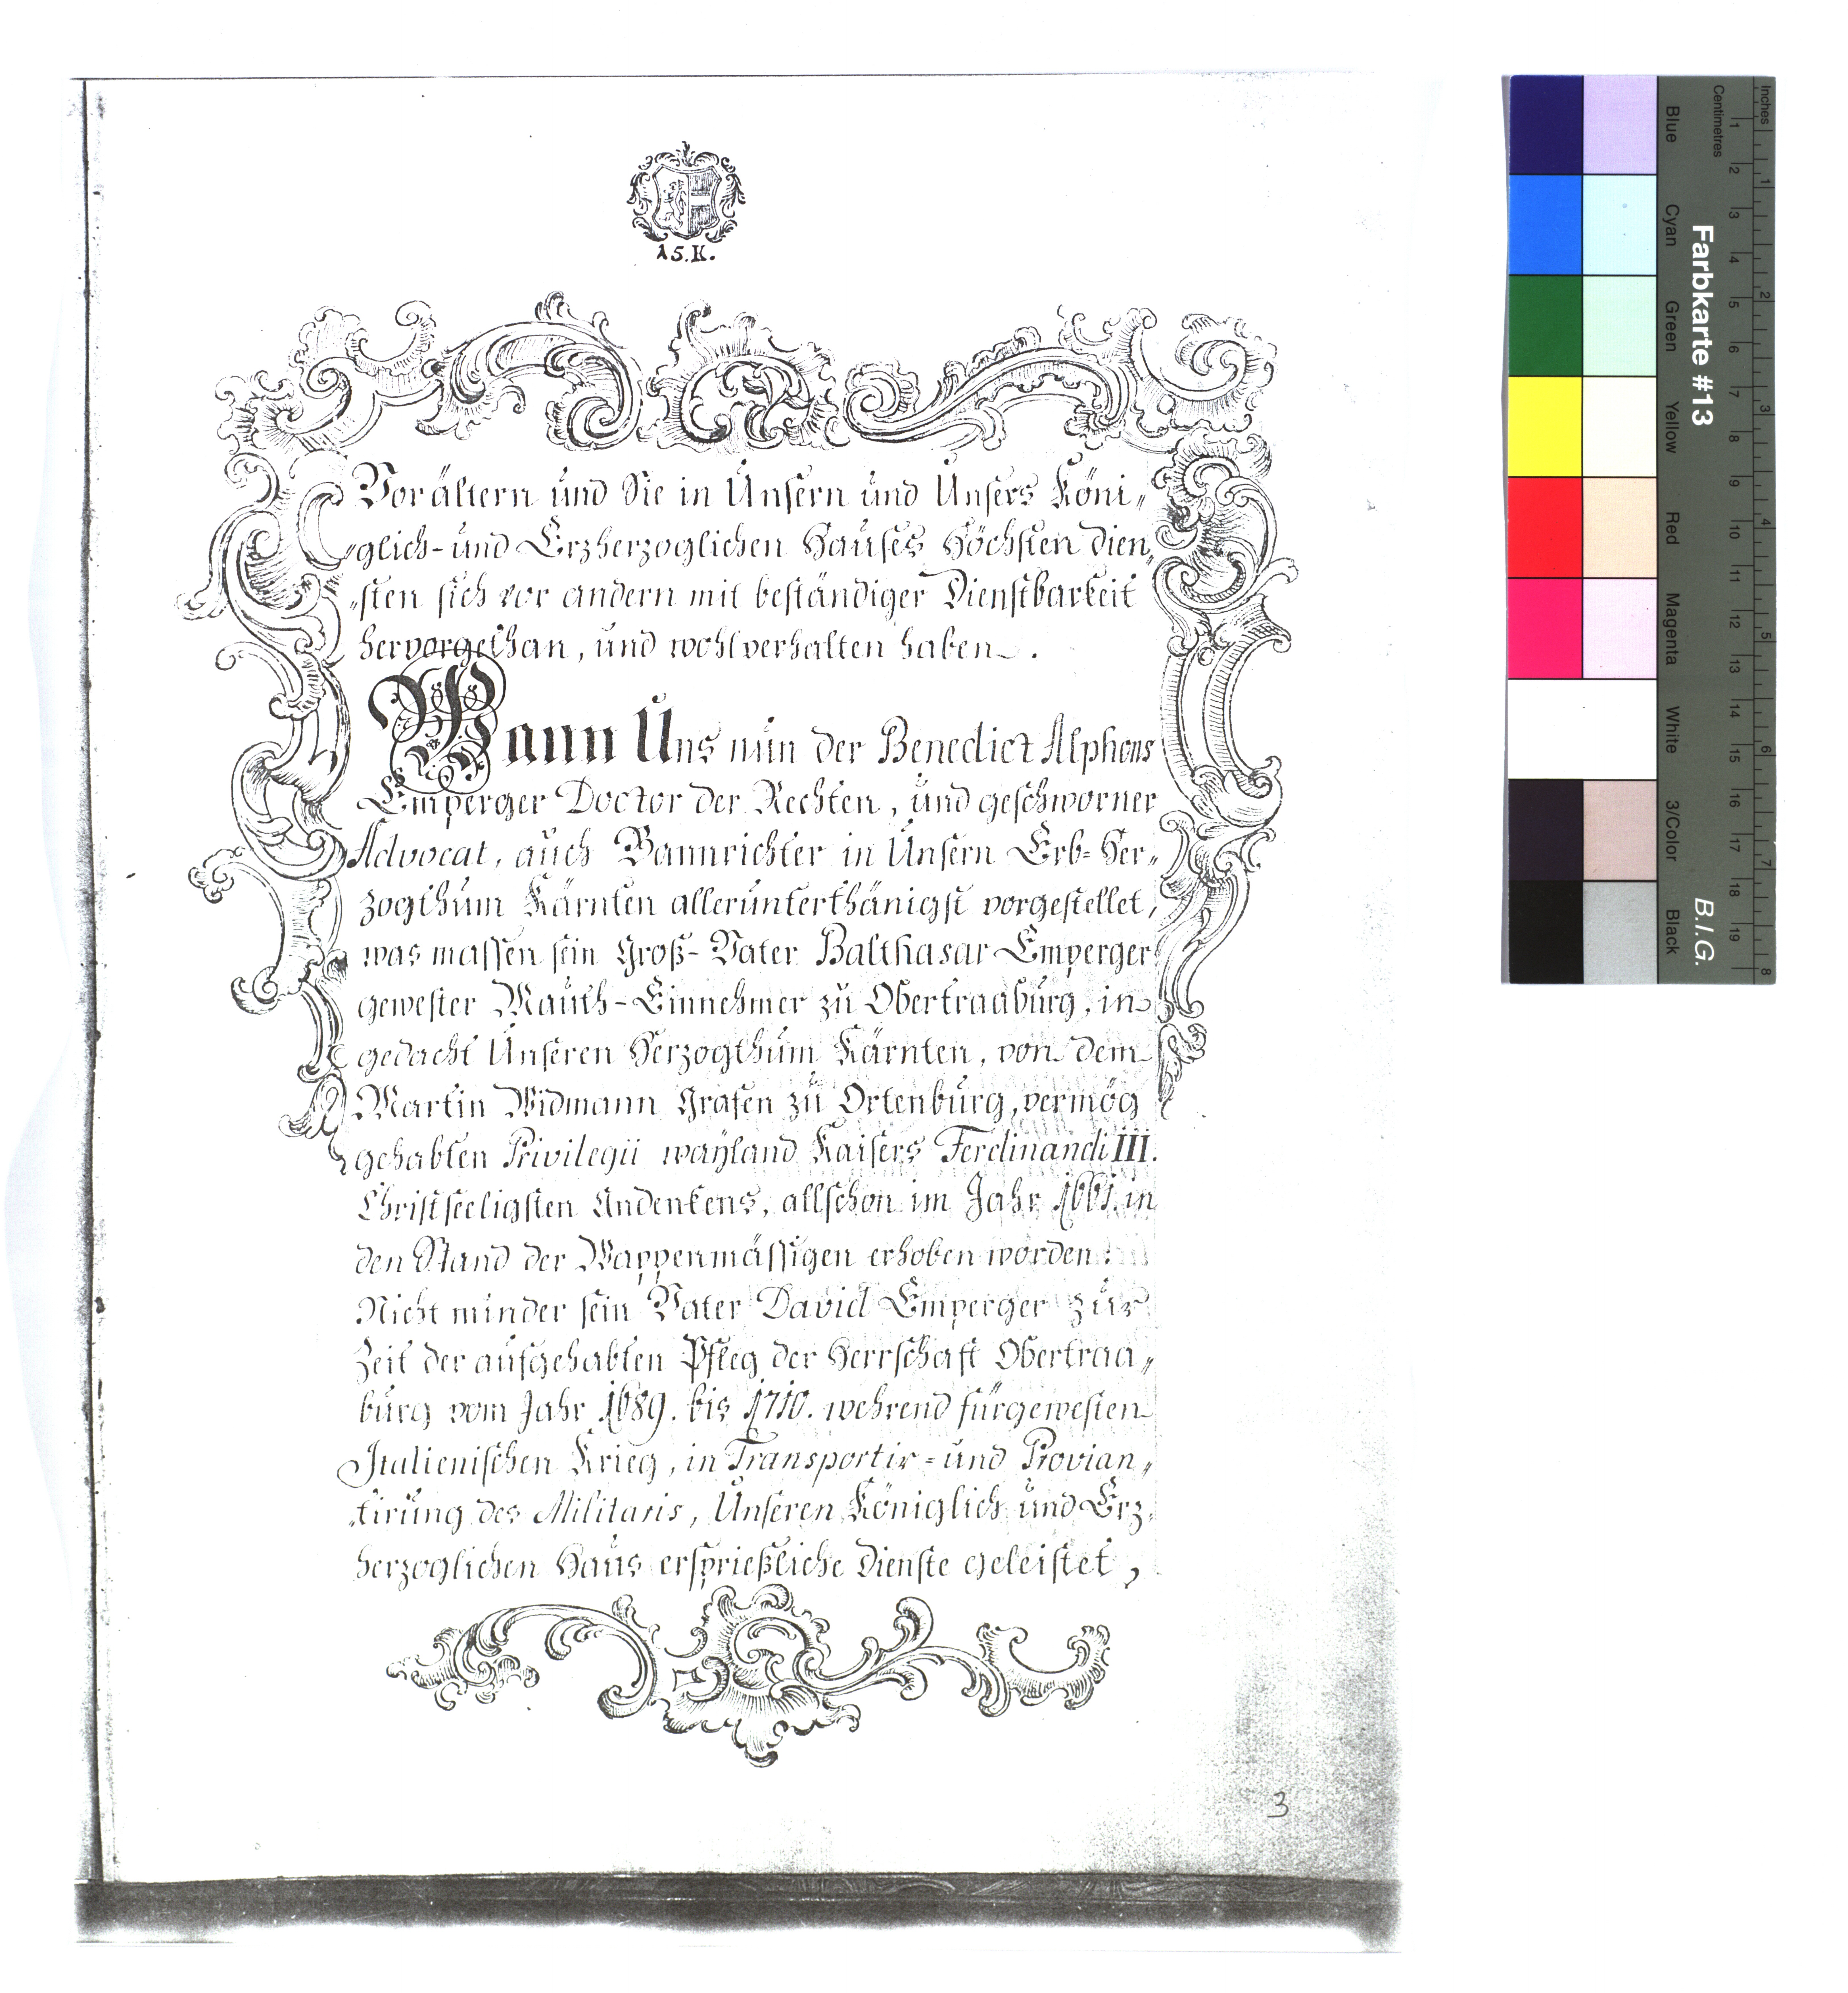 15.K.
Vorältern und Sie in Unsern und Unsers Köni„
„glich- und Erzherzoglichen Hauses Höchsten dien„
„sten sich vor andern mit beständiger Dienstbarkeit
hervorgethan, und wohl verhalten haben.
Wann Uns nun der Benedict Alphons
Emperger Doctor der Rechten, und geschworner
Advocat, auch Bannrichter in Unsern Erb-Her„
zogthum Kärnten allerunterthänigst vorgestellet,
was massen sein Groß-Vater Balthasar Emperger
gewester Mauth-Einnehmer zu Obertraaburg, in
gedacht Unseren Herzogthum Kärnten, von dem
Martin Widmann Grafen zu Ortenburg, vermög
gehabten Privilegii wayland Kaisers Ferdinandi III.
Christseeligsten Andenkens, allschon im Jahr 1661. in
den Stand der Wappenmässigen erhoben worden:
Nicht minder sein Vater David Emperger zur
Zeit der aufgehabten Pfleg der Herrschaft Obertraa„
burg vom Jahr 1689. bis 1710. wehrend fürgewesten
Italienischen Krieg, in Transportir- und Provian„
„tirung des Militaris, Unseren Königlich und Erz„
herzoglichen Haus ersprießliche Dienste geleistet,
3
Farbkarte #13
B.I.G.
Inches
Centimetres
1 2 3 4 5 6 7 8 9 10 11 12 13 14 15 16 17 18 19
1 2 3 4 5 6 7 8
Blue
Cyan
Green
Yellow
Red
Magenta
White
3/Color
Black